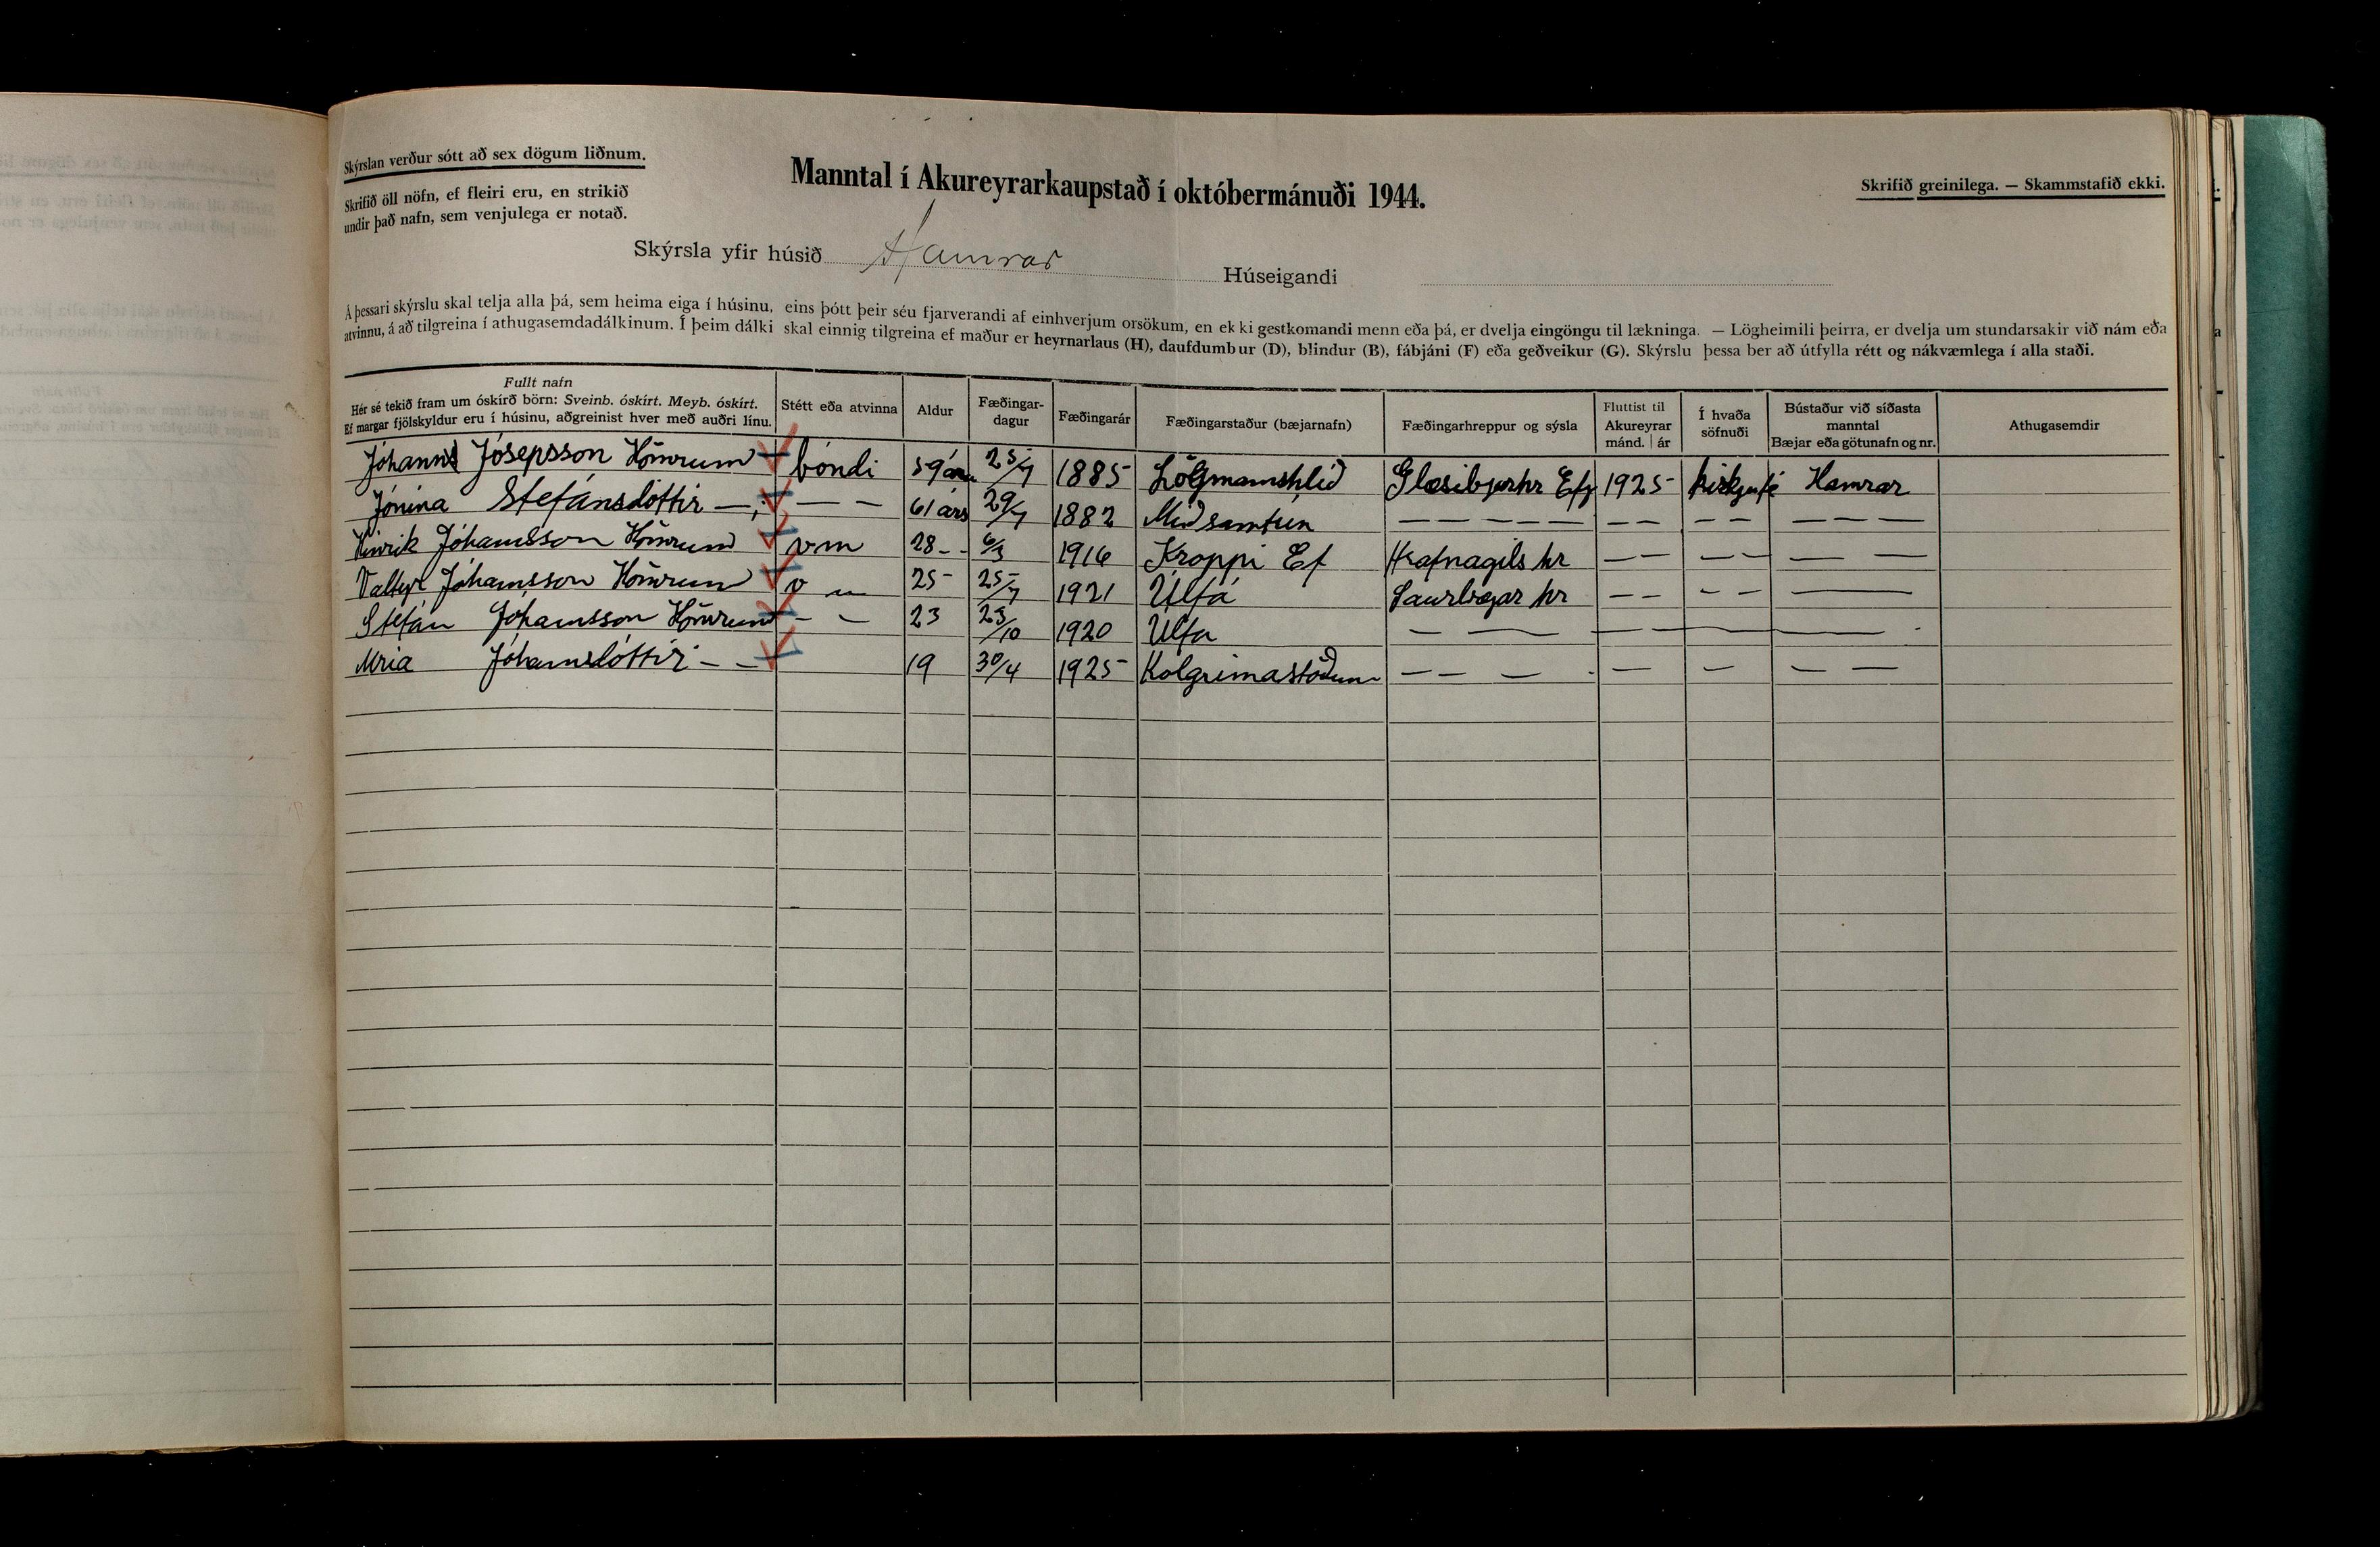 Skýrslan verður sótt að sex dögum liðnum.
Skrifið öll nöfn, ef fleiri eru, en strikið
undir það nafn, sem venjulega er notað.
Manntal í Akureyrarkaupstað í októbermánuði 1944.
Skrifið greinilega. — Skammstafið ekki.
Skýrsla yfir húsið Hamrar Húseigandi
Á þessari skýrslu skal telja alla þá, sem heima eiga í húsinu, eins þótt þeir séu fjarverandi af einhverjum orsökum, en ekki gestkomandi menn eða þá, er dvelja eingöngu til lækninga. — Lögheimili þeirra, er dvelja um stundarsakir við nám eða
atvinnu, á að tilgreina í athugasemdadálkinum. Í þeim dálki skal einnig tilgreina ef maður er heyrnarlaus (H), daufdumbur (D), blindur (B), fábjáni (F) eða geðveikur (G). Skýrslu þessa ber að útfylla rétt og nákvæmlega í alla staði.
Fullt nafn
Hér sé tekið fram um óskírð börn: Sveinb. óskírt. Meyb. óskírt.
Ef margar fjölskyldur eru í húsinu, aðgreinist hver með auðri línu.
Stétt eða atvinna
Aldur
Fæðingar-
dagur
Fæðingarár
Fæðingarstaður (bæjarnafn)
Fæðingarhreppur og sýsla
Fluttist til
Akureyrar
mánd. | ár
Í hvaða
söfnuði
Bústaður við síðasta
manntal
Bæjar eða götunafn og nr.
Athugasemdir
Jóhann Jósepsson Hömrum bóndi 59 ára 25/7 1885 Lögmanshlíð Glæsibjarhr Efj 1925 Hamrar
Jónína Stefánsdóttir — — — 61 árs 29/7 1882 Miðsamtún — — — — — — — — — — — —
Hinrik Jóhansson Hömrum v m 28 - - 6/3 1916 Kroppi Ef Hrafnagils hr — — — — — —
Valtyr Jóhansson Hömrum v m 25 25/7 1921 Úlfá Saurbæjar hr — — — — —
Stefán Jóhansson Hömrum - - 23 23/10 1920 Úlfa — — — — —
Mria Jóhansdóttir - - 19 30/4 1925 Kolgrimastöðum — — — — — — —